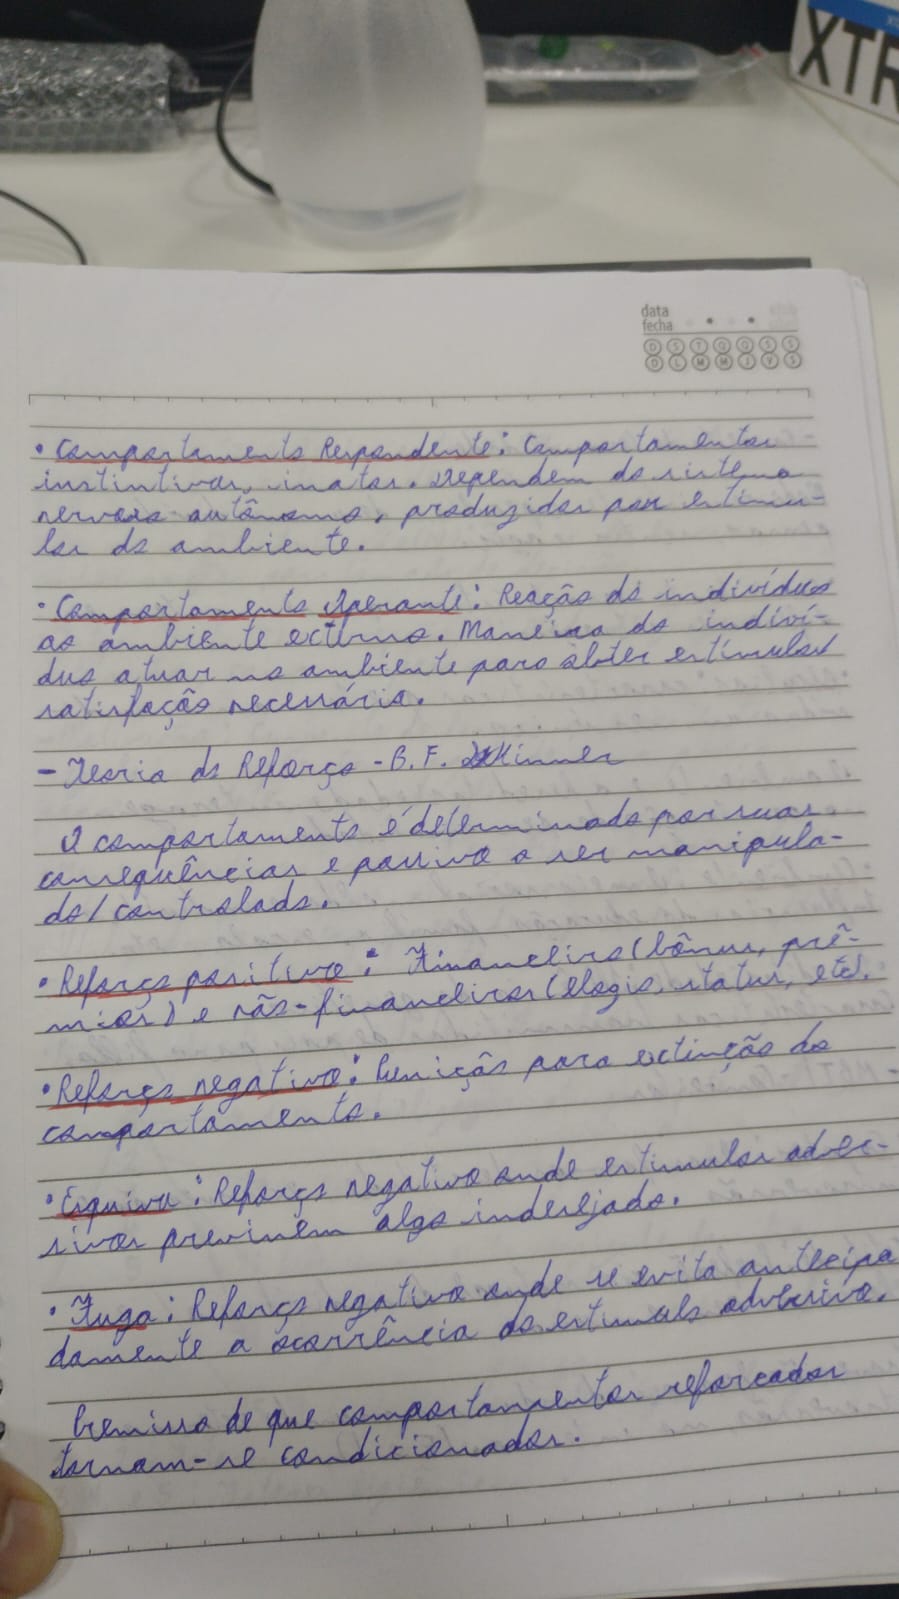 XTR
data
fecha
D S T Q Q S S
D L M M J V S
• Comportamento Respondente: Comportamentos
instintivos, inatos. Dependem do sistema
nervoso autônomo, produzidos por estímu-
los do ambiente.
• Comportamento Operante: Reação do indivíduo
ao ambiente externo. Maneira do indiví-
duo atuar no ambiente para obter estímulos/
satisfação necessária.
- Teoria do Reforço - B. F. Skinner
O comportamento é determinado por suas
consequências e passivo a ser manipula-
do/controlado.
• Reforço positivo: Financeiro (bônus, prê-
mios) e não-financeiros (elogio, status, etc).
• Reforço negativo: Punição para extinção do
comportamento.
• Esquiva: Reforço negativo onde estímulos adver-
sivos previnem algo indesejado.
• Fuga: Reforço negativo onde se evita antecipa
damente a ocorrência do estímulo adversivo.
Premissa de que comportamentos reforçados
tornam-se condicionados.